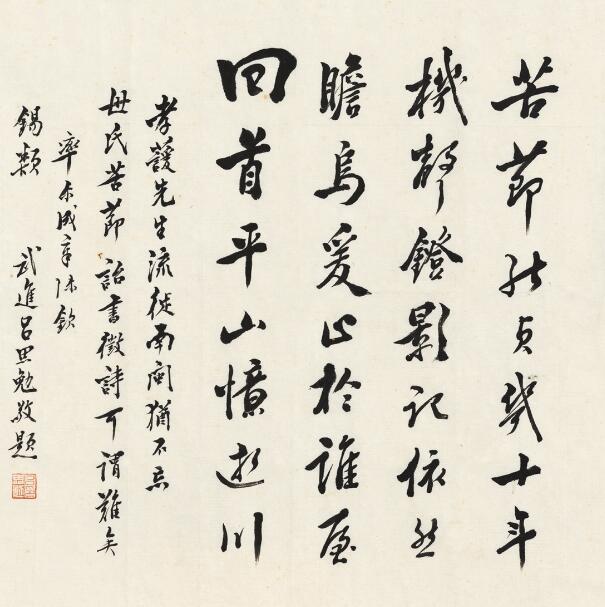 苦節能貞幾十年
機聲鐙影記依然
瞻烏爰止於誰屋
回首平山憶逝川
孝蘐先生流徙南猶不忘
母氏苦節詒書徵詩可謂難矣
率尔成章陳欽
錫類 武進呂思勉敬題